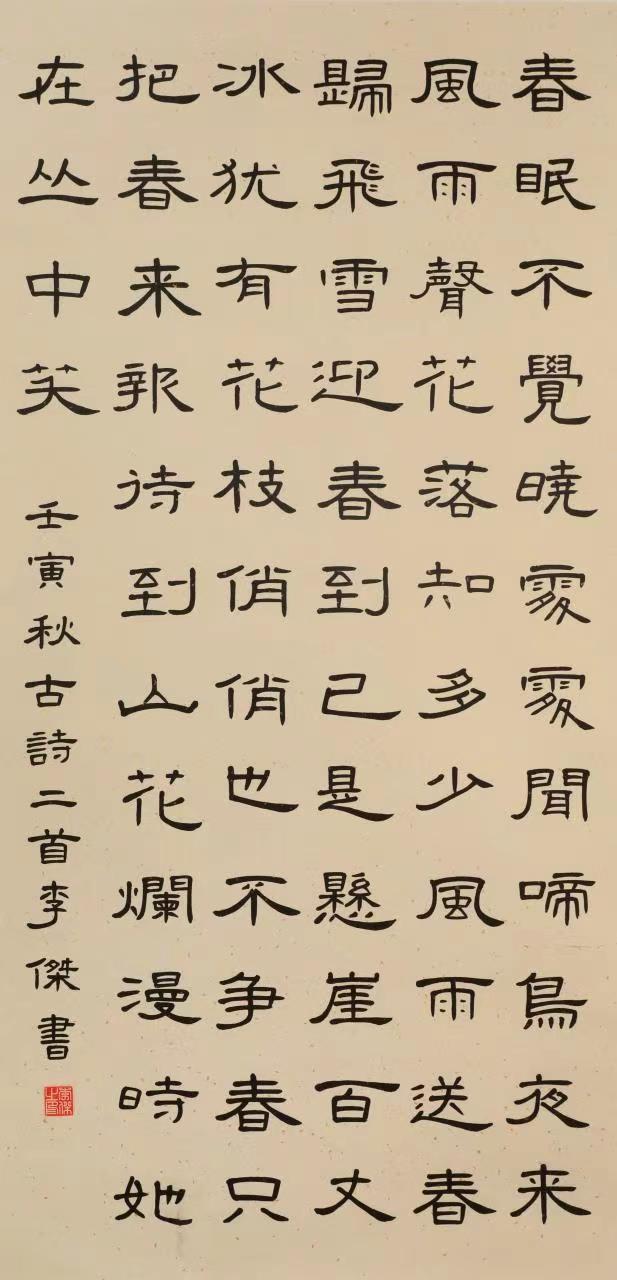 春眠不覺曉處處聞啼鳥夜来
風雨聲花落知多少風雨送春
歸飛雪迎春到已是懸崖百丈
冰犹有花枝俏俏也不争春只
把春来報待到山花爛漫時她
在丛中笑
壬寅秋古詩二首李傑書